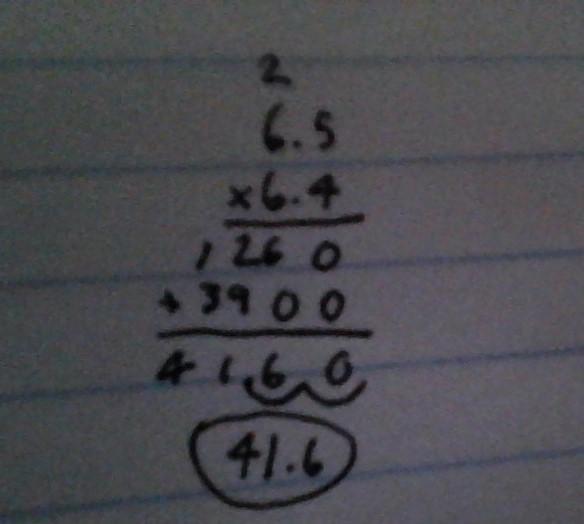 2
6.5
×6.4
1 260
+3900
41.60
41.6